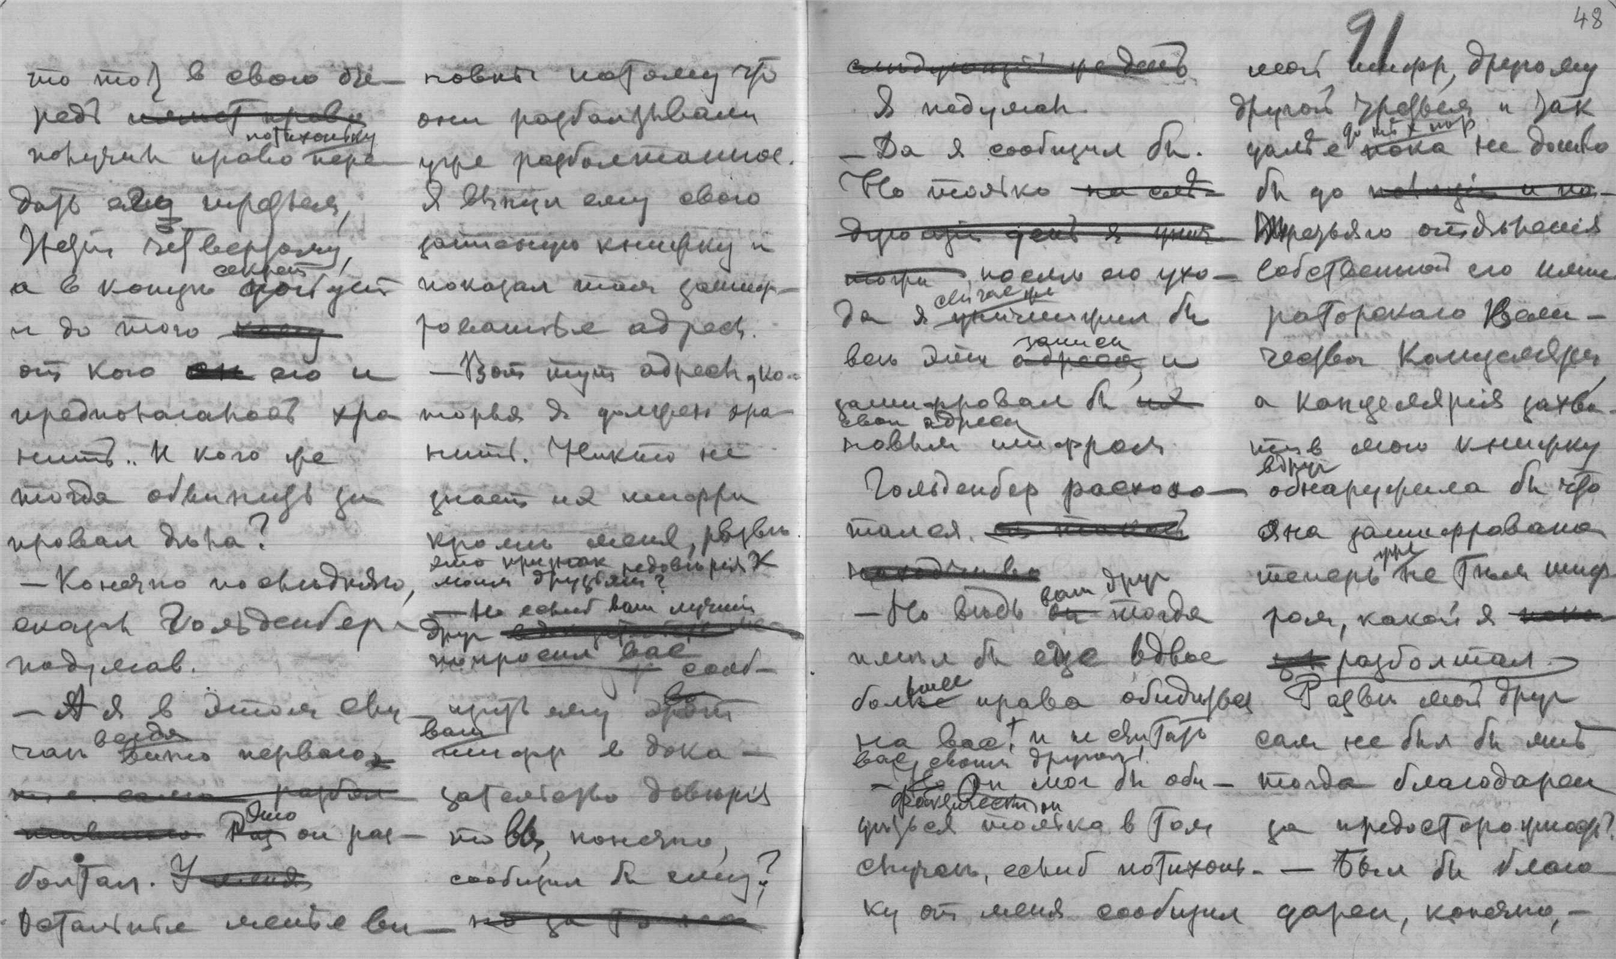 48
91
то тот в свою оче-
редь
потихоньку
получил право пере-
дать ему третьему,
четвертому,
секрет
а в конце
и до того
от кого его и
предполагалось хра
нить.. И кого же
тогда обвинить за
провал дела?
— Конечно последняго,
сказал Гольденберг
подумав.
— А я в этом слу-
чае первого
Это он раз-
болтал.
Остальные менее ви-
новны потому что
они разбалтывали
уже разболтанное.
Я вынул ему свою
записную книжку и
показал там зашиф-
рованные адреса.
— Вот тут адреса, ко-
торые я должен хра-
нить. Никто не
знает их шифра
кроме меня, развѣ
это признак недовѣрия к
моим друзьям?
— Но еслиб ваш лучший
друг
попросил вас сооб-
щить ему этот
ваш
шифр в дока-
зательство довѣрия
то вы, конечно,
сообщил бы ему?
Я подумал.
— Да я сообщил бы.
Но только
послѣ его ухо-
да я бы
записи
весь эти и
зашифровал бы
свои адреса
новым шифром
Гольденберг расхохо-
тался.
ваш друг
— Но вѣдь тогда
имѣл бы еще вдвое
больше права обидѣться
на вас! и не считать
вас своим другом!
— Но Он мог бы оби-
фактически он
дѣться только в том
случаѣ, еслиб потихонь-
ку от меня сообщил
мой шифр, другому
другой третьему и так
до тѣх пор
далѣе пока не дошло
бы до
Третьяго отдѣления
собственной его импе
раторскаго Вели-
чества Канцелярии,
а канцелярия захва-
тив мою книжку
вдруг
обнаружила бы что
она зашифрована
уже
теперь не тѣм шиф
ром, какой я
разболтал.
Развѣ мой друг
сам не был бы мнѣ
тогда благодарен
за предосторожность?
— Был бы благо-
дарен, конечно, —